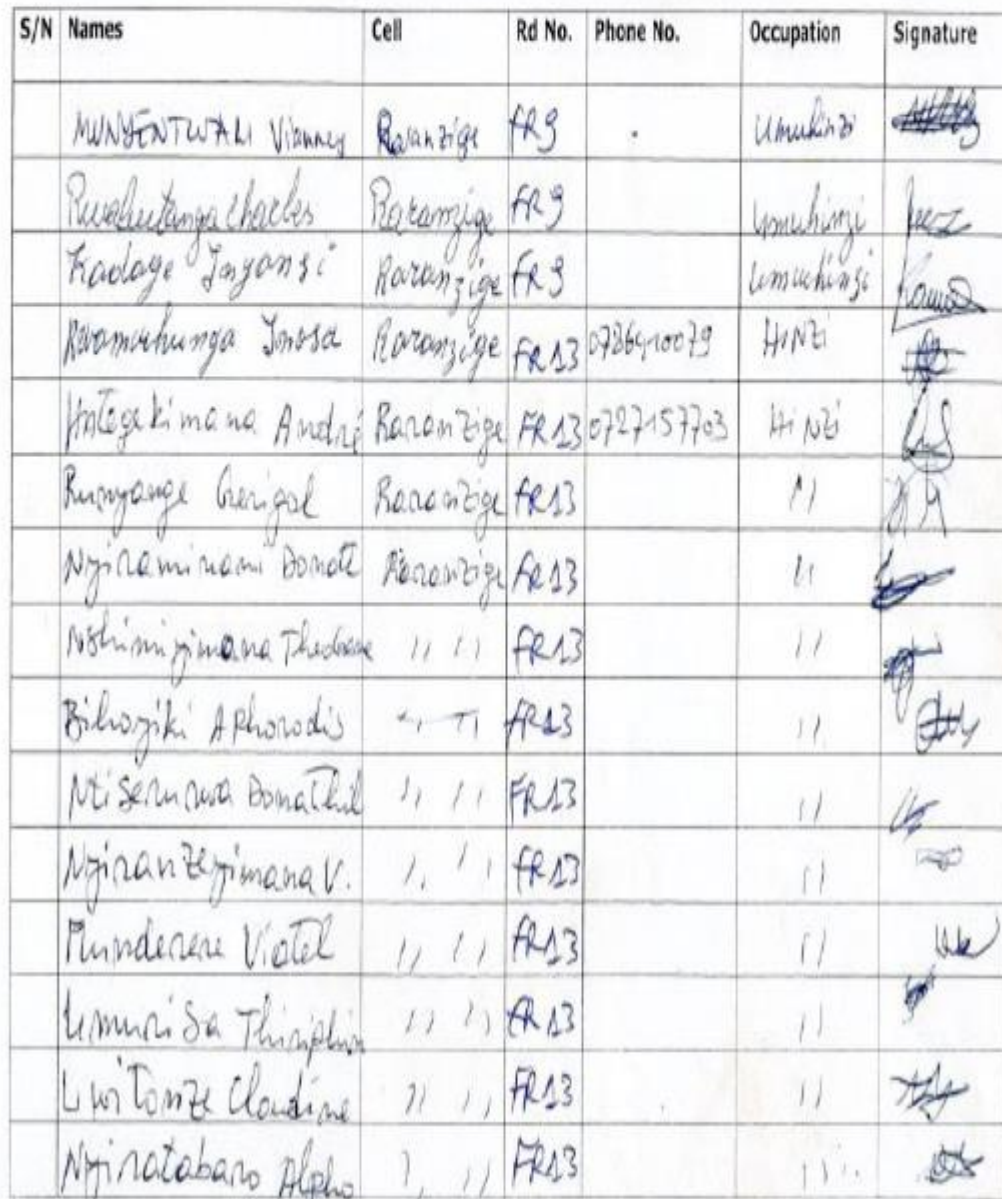 S/N Names Cell Rd No. Phone No. Occupation Signature
MUNYENTWALI Vianney Raranzige FR9 Umuhinzi
Rwabutanga Charles Raranzige FR9 Umuhinzi
Kadage Inyonsi Raranzige FR9 Umuhinzi
Rwamuhunga Inosa Raranzige FR13 HiNzi
Hategekimana André Raranzige FR13 0727157703 HiNzi
Runyange Raranzige FR13 11
Nyiraminani Donath Raranzige FR13 11
Nshimiyimana Theodore 11 11 FR13 11
Bihoyiki Aphorodis FR13 11
Ntiserurwa Donathil 11 11 FR13 11
Nyiranzeyimana V. 11 11 FR13 11
Munderere Viatel 11 11 FR13 11
Umurisa 11 11 FR13 11
Uwitonze Claudine 11 11 FR13 11
Nyiratabaro Alpho 11 11 FR13 11